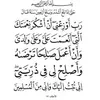 رَبِّ أَوْزِعْنِي أَنْ أَشْكُرَ نِعْمَتَكَ
الَّتِي أَنْعَمْتَ عَلَيَّ وَعَلَى وَالِدَيَّ
وَأَنْ أَعْمَلَ صَالِحًا تَرْضَاهُ
وَأَصْلِحْ لِي فِي ذُرِّيَّتِي
إِنِّي تُبْتُ إِلَيْكَ وَإِنِّي مِنَ الْمُسْلِمِينَ